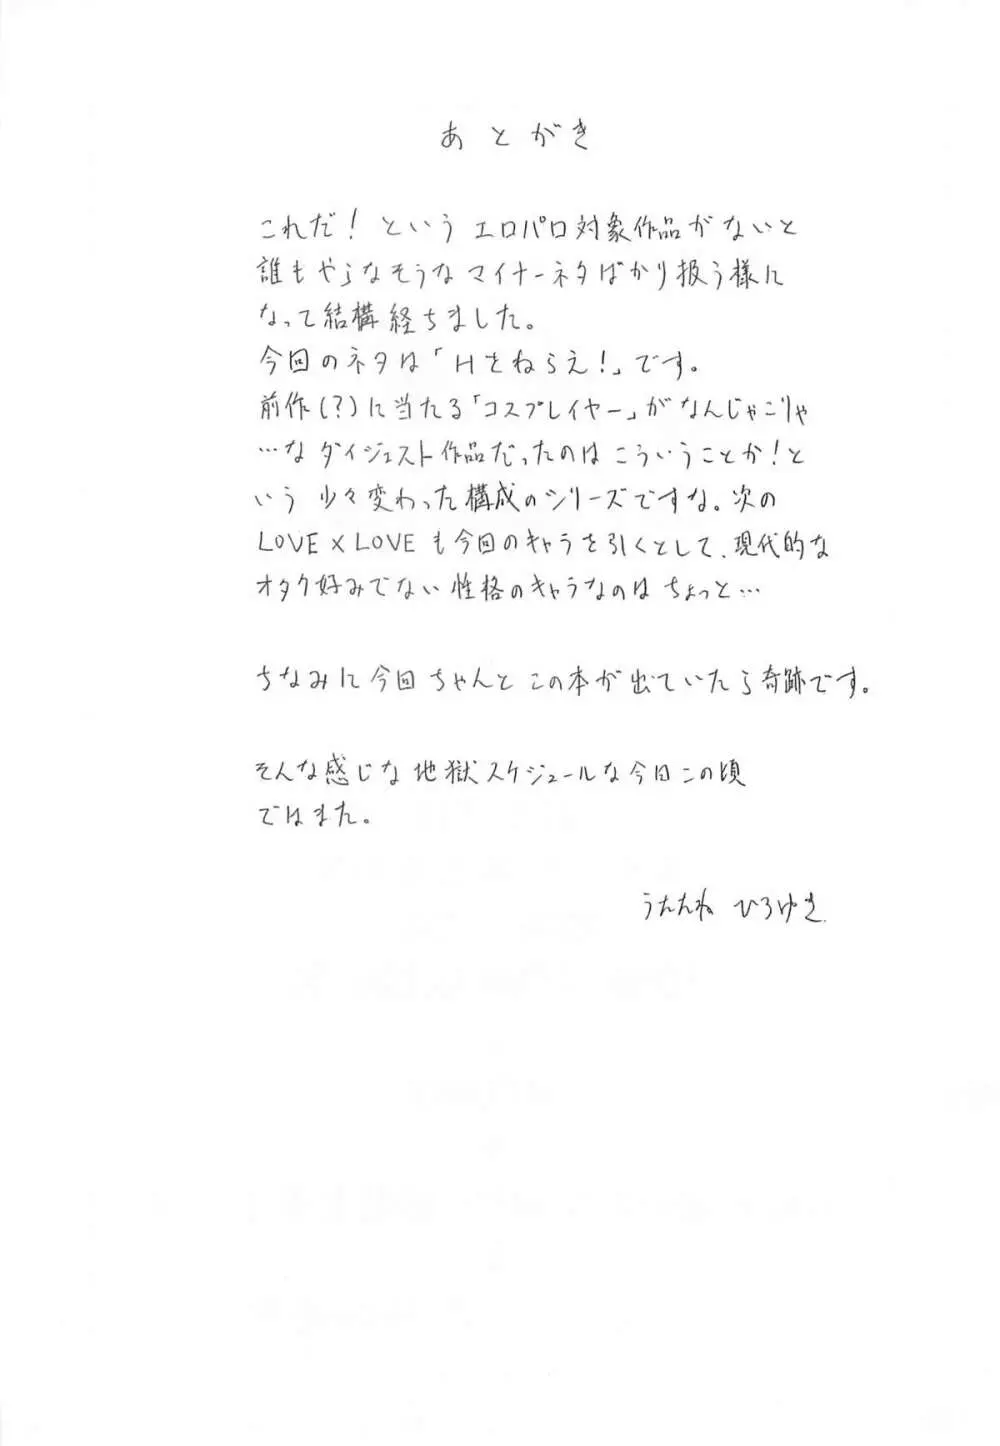 あとがき
これだ！というエロパロ対象作品がないと
誰もやらなそうなマイナーネタばかり扱う様に
なって結構経ちました。
今回のネタは「Hをねらえ！」です。
前作(?)に当たる「コスプレイヤー」がなんじゃこりゃ
…なダイジェスト作品だったのはこういうことか！と
いう少々変わった構成のシリーズですな。次の
LOVE×LOVEも今回のキャラを引くとして、現代的な
オタク好みでない性格のキャラなのはちょっと…
ちなみに今回ちゃんとこの本が出ていたら奇跡です。
そんな感じな地獄スケジュールな今日この頃
ではまた。
うたたね ひろゆき